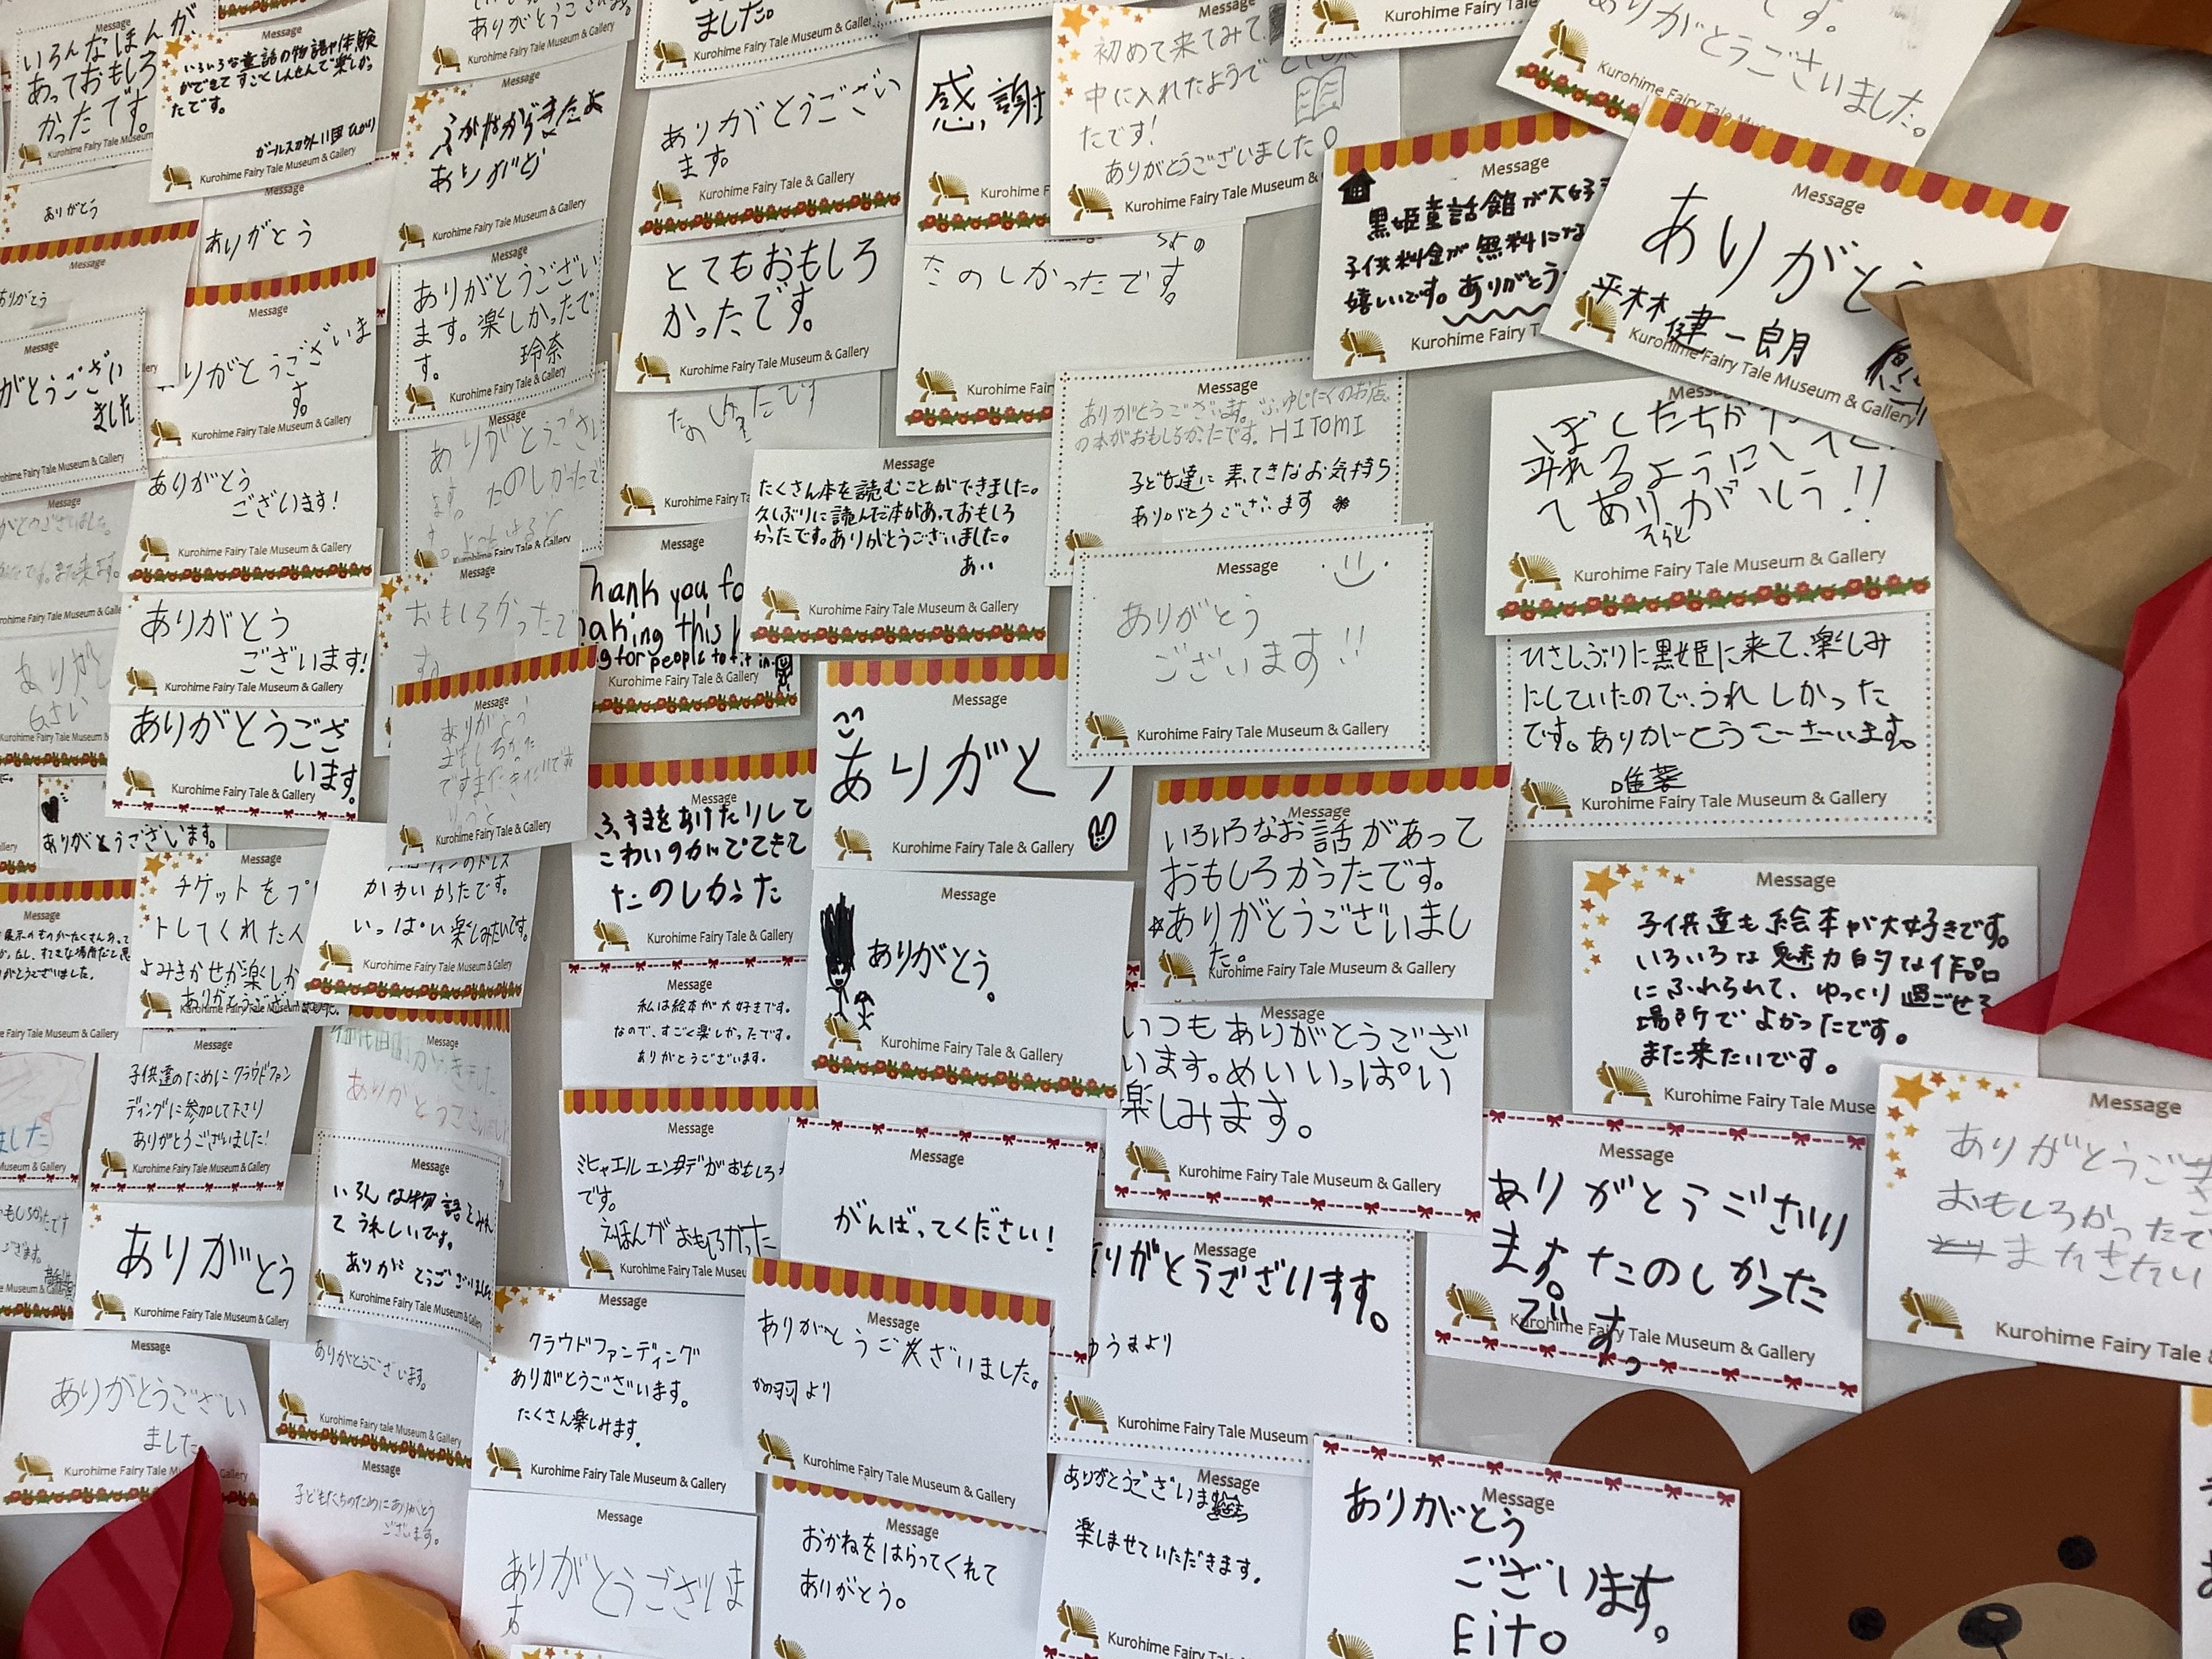 Message
いろんなほんが
あっておもしろ
かったです。
Kurohime Fairy Tale Museum
Message
いろいろな童話の物語や体験
ができて すごくしんせんで楽しかっ
たです。
ガールスカウト
Kurohime Fairy Tale Museum & Gallery
ありがとうございます。
Kurohime Fairy Tale Museum & Gallery
ました。
Kurohime Fairy Tale Museum & Gallery
Message
ありがとう
Kurohime Fairy Tale Museum & Gallery
ありがとうござい
ます。
Kurohime Fairy Tale & Gallery
感謝
Kurohime Fai
Message
初めて来てみて、
中に入れたようで
たです!
ありがとうございました
Kurohime Fairy Tale Museum &
Kurohime Fairy
です。
ありがとうございました。
Kurohime Fairy Tale Mus
Message
黒姫童話館が大好
子供料金が無料にな
嬉しいです。ありがとう
Kurohime Fairy T
Message
ありがとう
平林
健一朗
Kurohime Fairy Tale Museum & Gallery
ありがとう
Message
ありがとう
Message
ありがとう
Message
がとうござい
ました
Museum & Gallery
Message
りがとうございま
す。
Kurohime Fairy Tale Museum & Gallery
Message
ありがとうござい
ます。楽しかったで
す。
玲奈
Kurohime Fairy Tale & Gallery
とてもおもしろ
かったです。
Kurohime Fairy Tale Museum & Gallery
たのしかったです。
Kurohime Fai
たです
Kurohime Fairy Ta
Message
ありがとうござい
ます。 たのしかったで
Kurohime Fairy Tale & Gallery
Message
ありがとうございます。ふゆじたくのお店
の本がおもしろかったです。HITOMI
子ども達に素てきなお気持ち
ありがとうございます
Message
ぼくたちが
来れるようにして
てありがとう!!
そらと
Kurohime Fairy Tale Museum & Gallery
ありがとう
ございます!
Kurohime Fairy Tale Museum & Gallery
Message
たくさん本を読むことができました。
久しぶりに読んだ本があっておもしろ
かったです。ありがとうございました。
あい
Kurohime Fairy Tale Museum & Gallery
Message
hank you fo
aking this
g for people to fit in.
Kurohime Fairy Tale Museum & Gallery
Message
おもしろかったで
す。
Message
ありがとう
ございます!!
Kurohime Fairy Tale Museum & Gallery
ありがとう
ございます!
Kurohime Fairy Tale Museum & Gallery
ひさしぶりに黒姫に来て、楽しみ
にしていたので、うれしかった
です。ありがとうございます。
唯菜
Kurohime Fairy Tale Museum & Gallery
ありがとうござ
います。
Kurohime Fairy Tale Museum & Gallery
Message
ありがとう
おもしろかった
ですまたきたいです
Kurohime Fairy Tale & Gallery
Message
ありがとう
Kurohime Fairy Tale Museum & Gallery
Message
ふすまをあけたりして
こわいのがでてきて
たのしかった
Kurohime Fairy Tale Museum & Gallery
ありがとうございます。
Message
いろいろなお話があって
おもしろかったです。
☆ありがとうございまし
た。
Kurohime Fairy Tale Museum & Gallery
Message
チケットをプ
トしてくれた人
よみきかせが楽しか
ありがとうござい
のドレス
かわいかったです。
いっぱい楽しみたいです。
Kurohime Fairy Tale Museum & Gallery
Message
ありがとう。
Kurohime Fairy Tale & Gallery
Message
子供達も絵本が大好きです。
いろいろな魅力的な作品
にふれられて、ゆっくり過ごせる
場所でよかったです。
また来たいです。
Kurohime Fairy Tale Muse
Message
展示のものがたくさんあって
がとうございました。
Fairy Tale Museum & Gallery
Message
私は絵本が大好きです。
なので、すごく楽しかったです。
ありがとうございます。
Message
いつもありがとうござ
います。めいいっぱい
楽しみます。
Kurohime Fairy Tale Museum & Gallery
Message
子供達のためにクラウドファン
ディングに参加して下さり
ありがとうございました!
Kurohime Fairy Tale Museum & Gallery
Message
ありがとうござい
Message
ミヒャエル エンデがおもしろ
です。
えほんが おもしろかった
Kurohime Fairy Tale Museu
Message
がんばってください!
Message
ありがとうござい
ます。たのしかった
です。
Kurohime Fairy Tale Museum & Gallery
Message
ありがとうご
おもしろかったで
またきたい
Kurohime Fairy Tale
ありがとう
Kurohime Fairy Tale Museum & Gallery
Message
いろんな物語をみれ
て うれしいです。
ありがとうございました
Kurohime Fairy Tale Museum & Gallery
Message
りがとうございます。
ゆうまより
Kurohime Fairy Tale Museum & Gallery
Message
クラウドファンディング
ありがとうございます。
たくさん楽しみます。
Kurohime Fairy Tale Museum & Gallery
Message
ありがとうございました。
かの羽より
Kurohime Fairy Tale Museum & Gallery
Message
ありがとうござい
ました
Kurohime Fairy Tale Museum & Gallery
ありがとうございます。
Kurohime Fairy Tale Museum & Gallery
Message
子どもたちのためにありがとう
ございます。
Message
ありがとうございま
す
Message
おかねをはらってくれて
ありがとう。
Message
ありがとうございま
楽しませていただきます。
Kurohime Fairy Tale Museum & Gallery
Message
ありがとう
ございます。
Eito